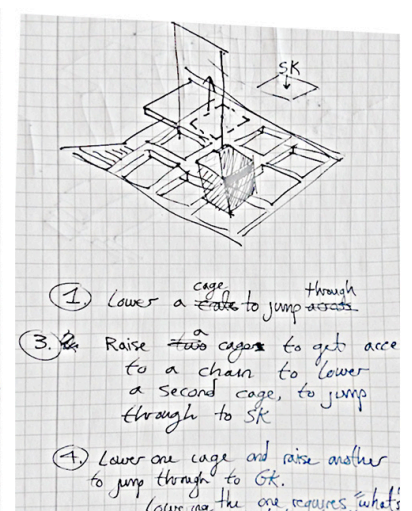 SK
1. Lower a cage to jump through
3. Raise a cage to get acce
to a chain to lower
a second cage, to jump
through to SK
4. Lower one cage and raise another
to jump through to GK.
Lowering the one requires "what's